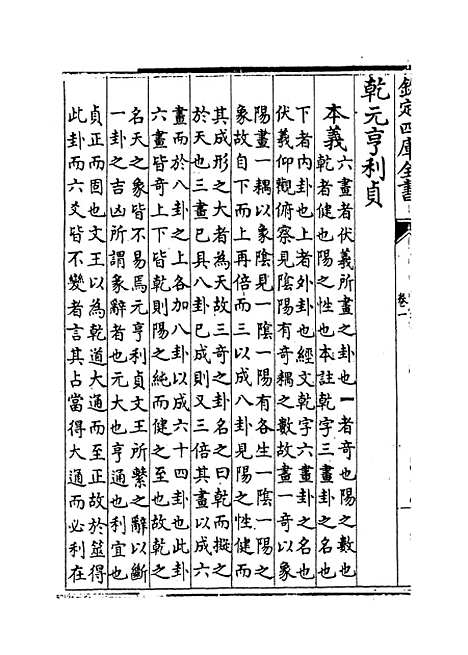 欽定四庫全書
卷一
乾元亨利貞
本義
六畫者伏羲所畫之卦也一者奇也陽之數也
乾者健也陽之性也本註乾字三畫卦之名也
下者內卦也上者外卦也經文乾字六畫卦之名也
伏羲仰觀俯察見陰陽有奇耦之數故畫一奇以象
陽畫一耦以象陰見一陰一陽有各生一陰一陽之
象故自下而上再倍而三以成八卦見陽之性健而
其成形之大者為天故三奇之卦名之曰乾而擬之
於天也三畫已具八卦已成則又三倍其畫以成六
畫而於八卦之上各加八卦以成六十四卦也此卦
六畫皆奇上下皆乾則陽之純而健之至也故乾之
名天之象皆不易焉元亨利貞文王所繫之辭以斷
一卦之吉凶所謂彖辭者也元大也亨通也利宜也
貞正而固也文王以為乾道大通而至正故於筮得
此卦而六爻皆不變者言其占當得大通而必利在